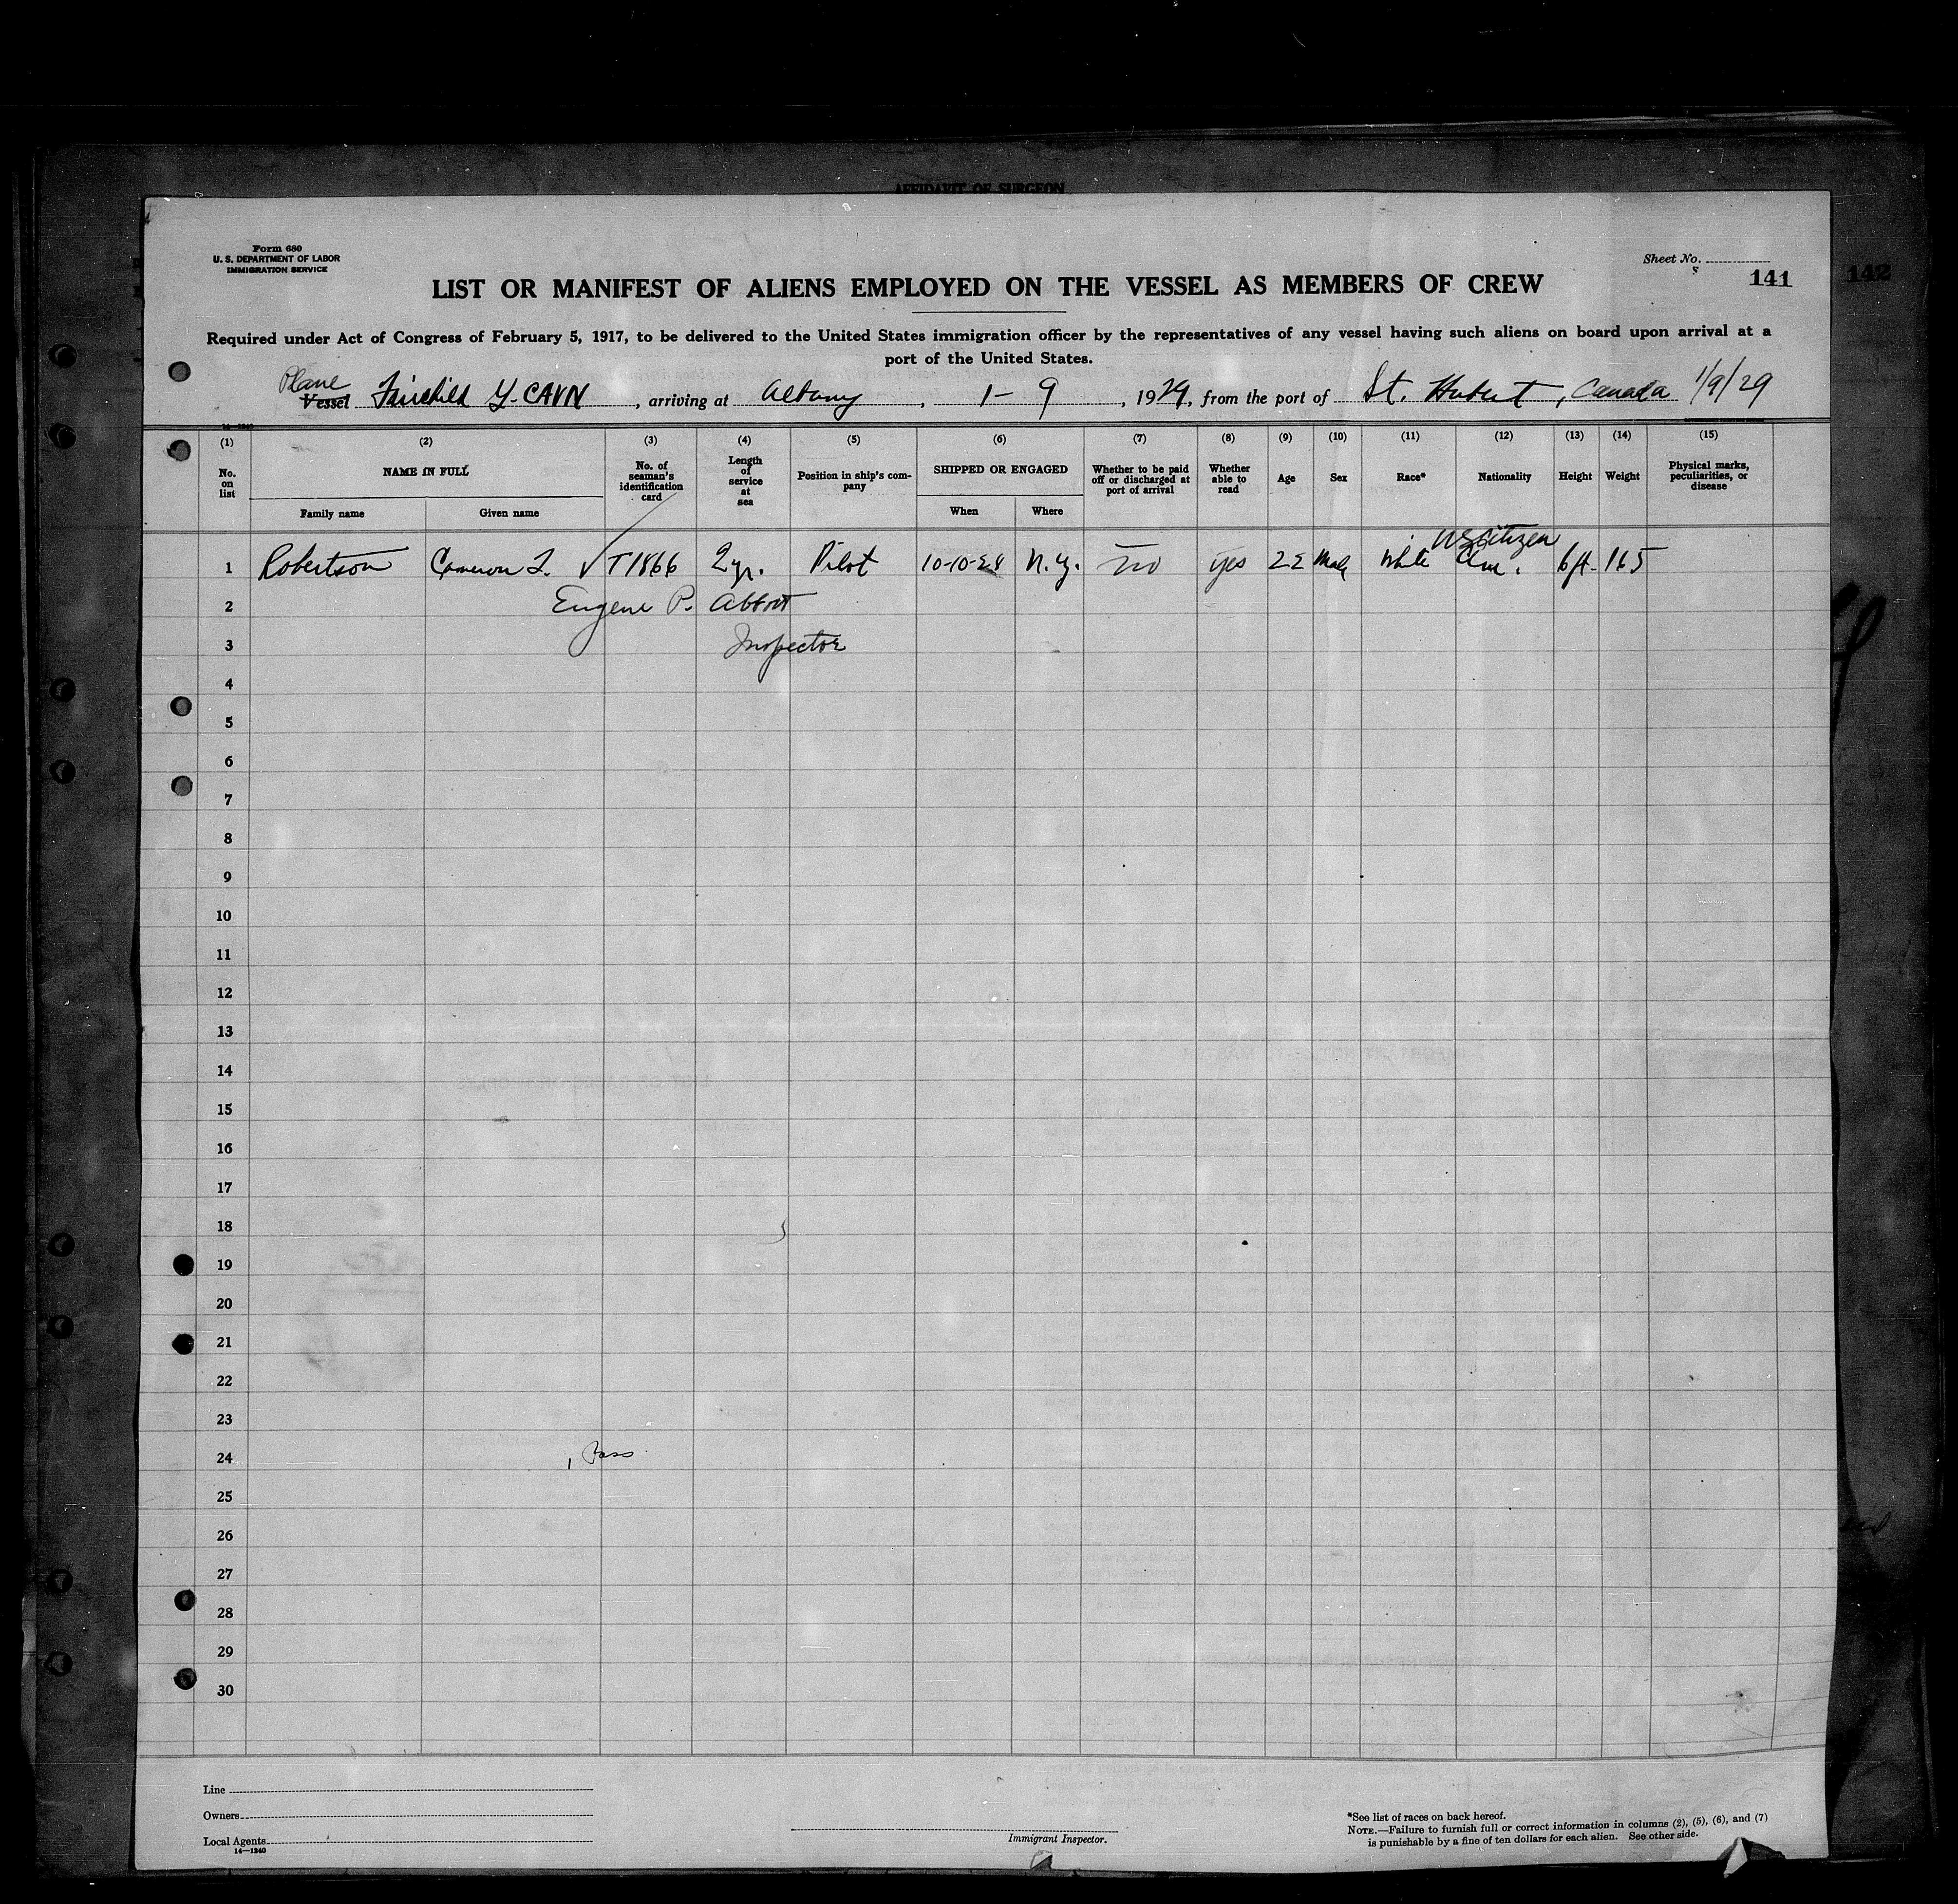 AFFIDAVIT OF SURGEON
Form 680
U. S. DEPARTMENT OF LABOR
IMMIGRATION SERVICE
Sheet No.
141
142
LIST OR MANIFEST OF ALIENS EMPLOYED ON THE VESSEL AS MEMBERS OF CREW
Required under Act of Congress of February 5, 1917, to be delivered to the United States immigration officer by the representatives of any vessel having such aliens on board upon arrival at a
port of the United States.
Plane
Vessel Fairchild Y-CAVN, arriving at Albany, 1-9, 1929, from the port of St. Hubert, Canada 1/9/29
14—1240
(1) (2) (3) (4) (5) (6) (7) (8) (9) (10) (11) (12) (13) (14) (15)
No. on list
NAME IN FULL
Family name
Given name
No. of seaman's identification card
Length of service at sea
Position in ship's company
SHIPPED OR ENGAGED
When
Where
Whether to be paid off or discharged at port of arrival
Whether able to read
Age
Sex
Race*
Nationality
Height
Weight
Physical marks, peculiarities, or disease
US Citizen
1 Robertson Cameron T1866 2 yr. Pilot 10-10-28 N.Y. no yes 22 Male White Am. 6ft. 165
2 Eugene P. Abbott
3 Inspector
4
5
6
7
8
9
10
11
12
13
14
15
16
17
18
19
20
21
22
23
24 1 Pass
25
26
27
28
29
30
Line
Owners
Local Agents
14—1240
Immigrant Inspector.
*See list of races on back hereof.
NOTE.—Failure to furnish full or correct information in columns (2), (5), (6), and (7)
is punishable by a fine of ten dollars for each alien. See other side.